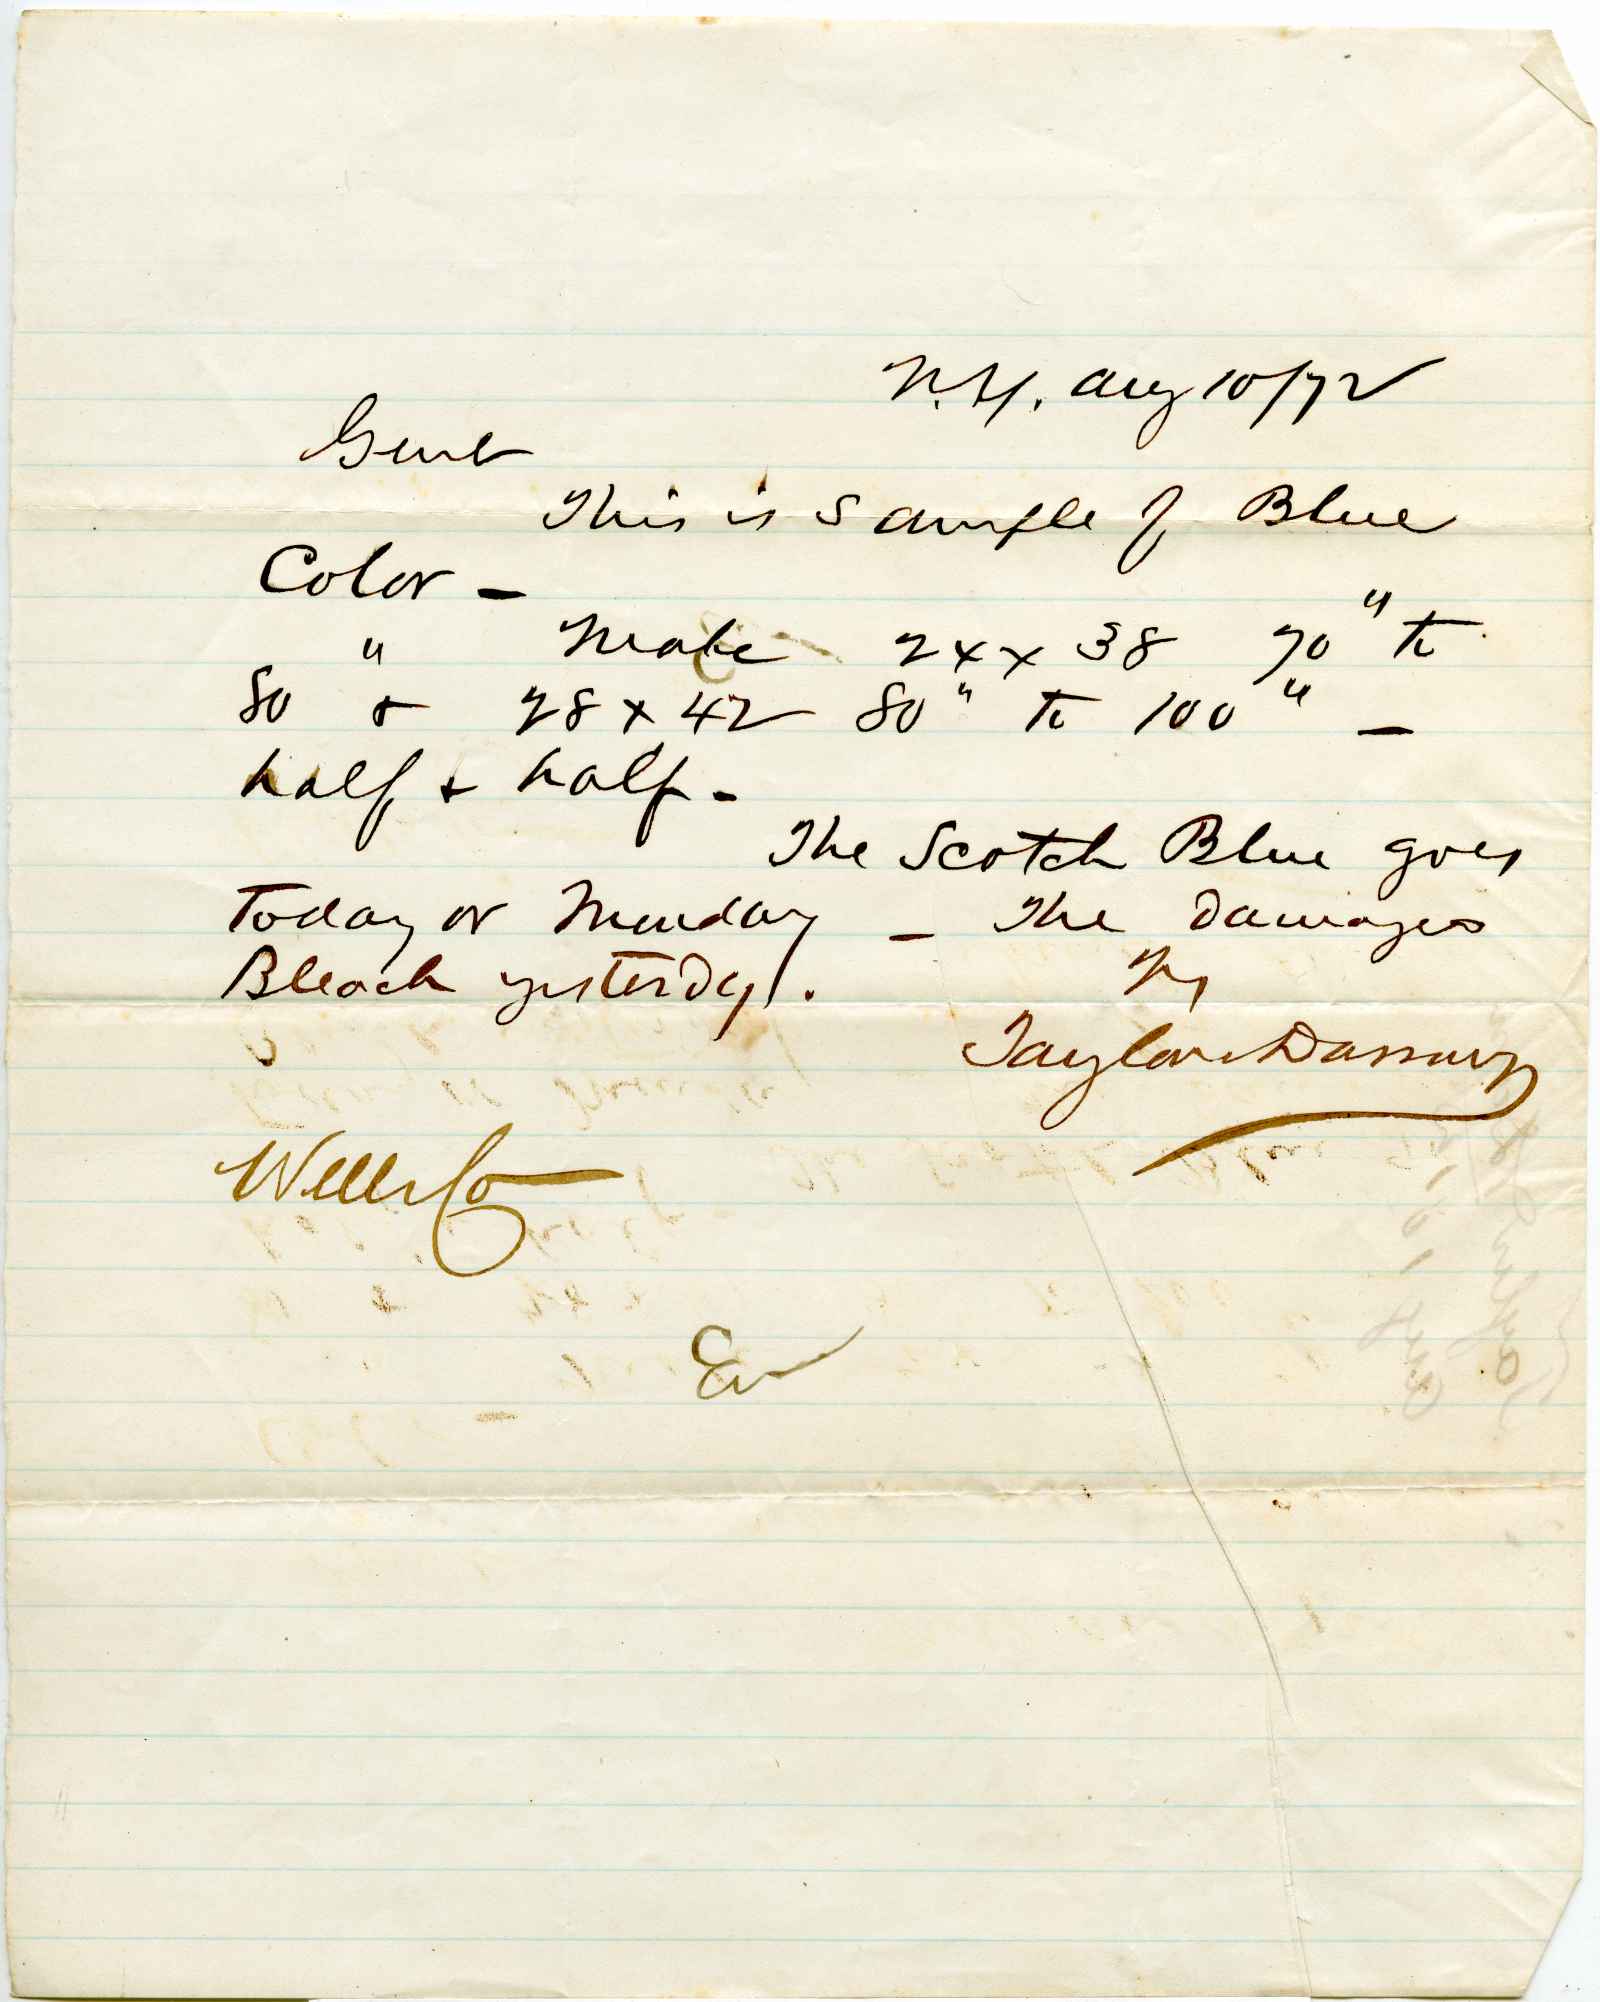 N.Y. Aug 10/72
Gent
This is sample of Blue
Color –
" Make 24 x 38 70" to
80 " & 28 x 42 80" to 100 " –
half & half –
The Scotch Blue goes
Today or Monday – The Damages
Bleach yesterdy.
Yrs
Taylor
Wells Co